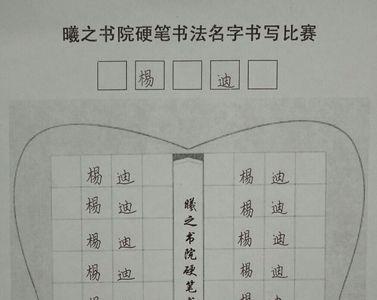 曦之书院硬笔书法名字书写比赛
楊 迪
楊 迪 楊 迪
楊 迪 楊 迪
楊 迪 楊 迪
楊 迪 楊 迪
曦之书院硬笔